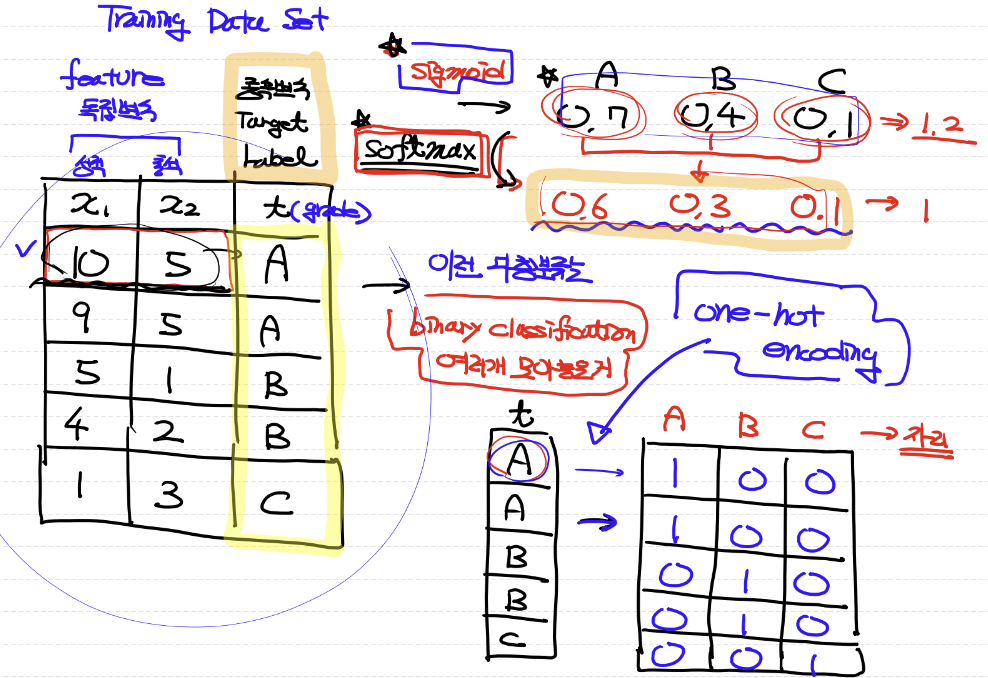 Training Data Set
feature
독립변수
성적 출석
종속변수
Target
Label
x₁ x₂ t(grade)
10 5 A
9 5 A
5 1 B
4 2 B
1 3 C
sigmoid
A B C
0.7 0.4 0.1 ⇒ 1.2
softmax
0.6 0.3 0.1 → 1
binary classification
여러개 모아놓은거
one-hot
encoding
t
A
A
B
B
C
A B C
1 0 0
1 0 0
0 1 0
0 1 0
0 0 1